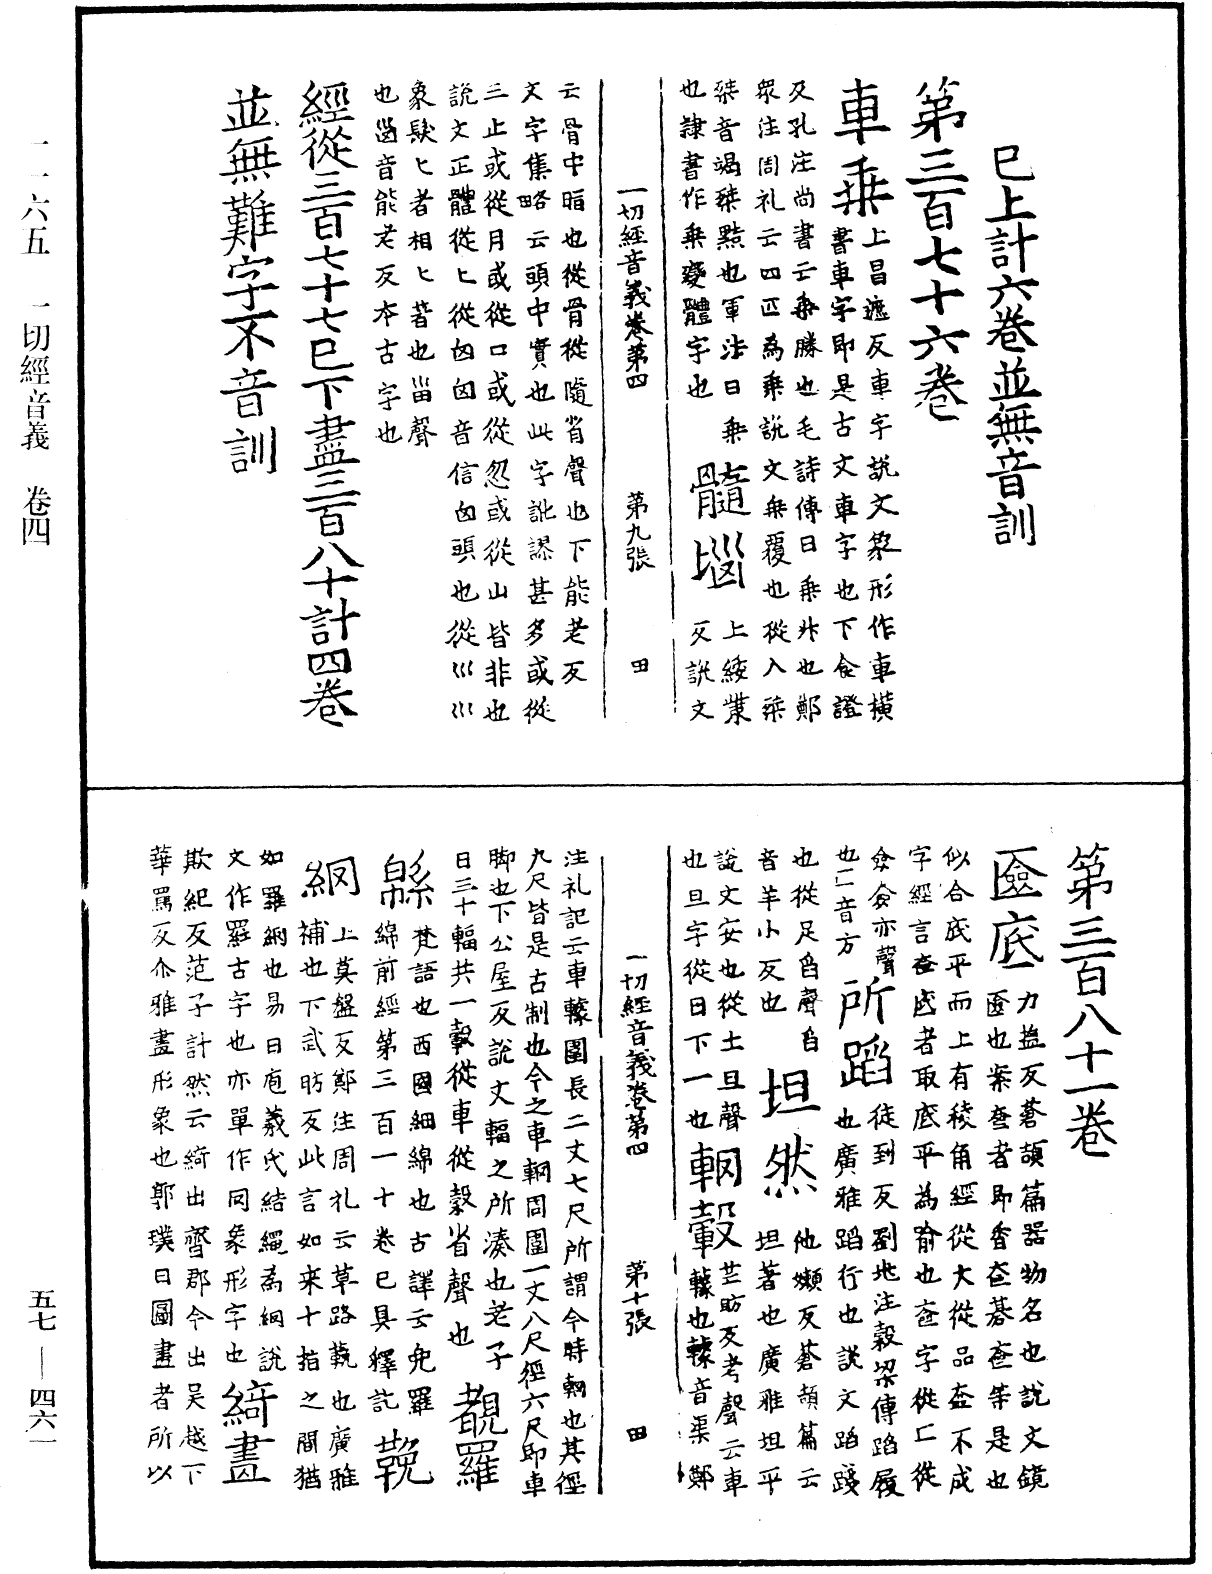 一一六五　一切經音義　卷四
已上計六卷並無音訓
第三百七十六卷
車乘
上昌遮反車字說文象形作車橫
書車字即是古文車字也下食證
反孔注尚書云乘勝也毛詩傳曰乘升也鄭
眾注周礼云四匹為乘說文乘覆也從入桀
桀音竭桀黠也軍法曰乘
也隷書作乘變體字也
髓𦛁
上綏𭒀
反說文
一切經音義卷第四　第九張　田
云骨中脂也從骨從隨省聲也下能老反
文字集略云頭中實也此字訛謬甚多或從
三止或從月或從口或從忽或從山皆非也
說文正體從匕從囟囟音信囟頭也從巛巛
象髮匕者相匕著也甾聲
也𡿺音能老反本古字也
經從三百七十七已下盡三百八十計四卷
並無難字不音訓
第三百八十一卷
匳底
力鹽反蒼頡篇器物名也說文鏡
匳也案奩者即香奩碁奩等是也
似合底平而上有稜角經從大從品奩不成
字經言奩底者取底平為喻也奩字從匚從
僉僉亦聲
也匚音方
所蹈
徒到反劉兆注穀梁傳蹈履
也廣雅蹈行也說文蹈踐
也從足舀聲舀
音羊小反也
坦然
他嬾反蒼頡篇云
坦著也廣雅坦平
說文安也從土旦聲
也旦字從日下一也
輞轂
芒昉反考聲云車
轢也𨏲音渠鄭
一切經音義卷第四　第十張　田
注礼記云車𨏲圍長二丈七尺所謂今時輞也其徑
九尺皆是古制也今之車輞周圍一丈八尺徑六尺即車
脚也下公屋反說文輻之所湊也老子
曰三十輻共一轂從車從㱿省聲也
覩羅
緜
梵語也西國細綿也古譯云兜羅
綿前經第三百一十卷已具釋訖
鞔
網
上莫盤反鄭注周礼云革路鞔也廣雅
補也下武昉反此言如來十指之間猶
如羅網也易曰庖羲氏結繩為網說
文作羅古字也亦單作网象形字也
綺畫
欺紀反范子計然云綺出齊郡今出吳越下
華罵反介雅畫形象也郭璞曰圖畫者所以
五七—四六一